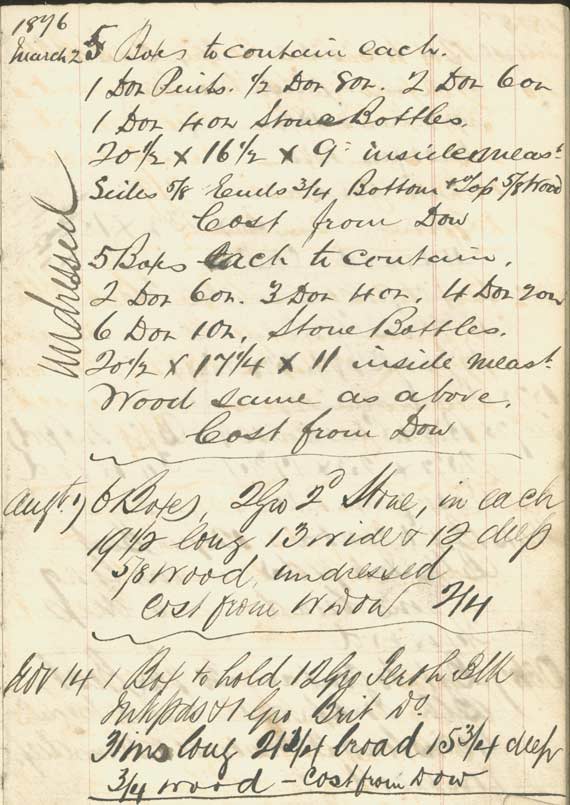 1876
March 2 5 Boxes to contain each.
1 Doz Pints. 1/2 Doz 8oz. 2 Doz 6oz
1 Doz 4oz Stone Bottles.
20 1/2 x 16 1/2 x 9 inside meast
Sides 5/8 Ends 3/4 Bottom & Top 5/8 Wood
Cost from Dow
Undressed
5 Boxes each to contain,
2 Doz 6oz. 3 Doz 4oz, 4 Doz 2oz
6 Doz 1oz, Stone Bottles.
20 1/2 x 17 1/4 x 11 inside meast.
Wood same as above.
Cost from Dow
Augt. 6 Boxes, 2 Gro 2d Stone, in each
19 1/2 long 13 wide & 12 deep
5/8 Wood, undressed
Cost from W Dow 2/4
Nov 14 1 Box to hold 12 Gro Perth Blk
Ink & 1 Gro Brit Do
31 ins long 21 3/4 broad 15 3/4 deep
3/4 wood - Cost from Dow